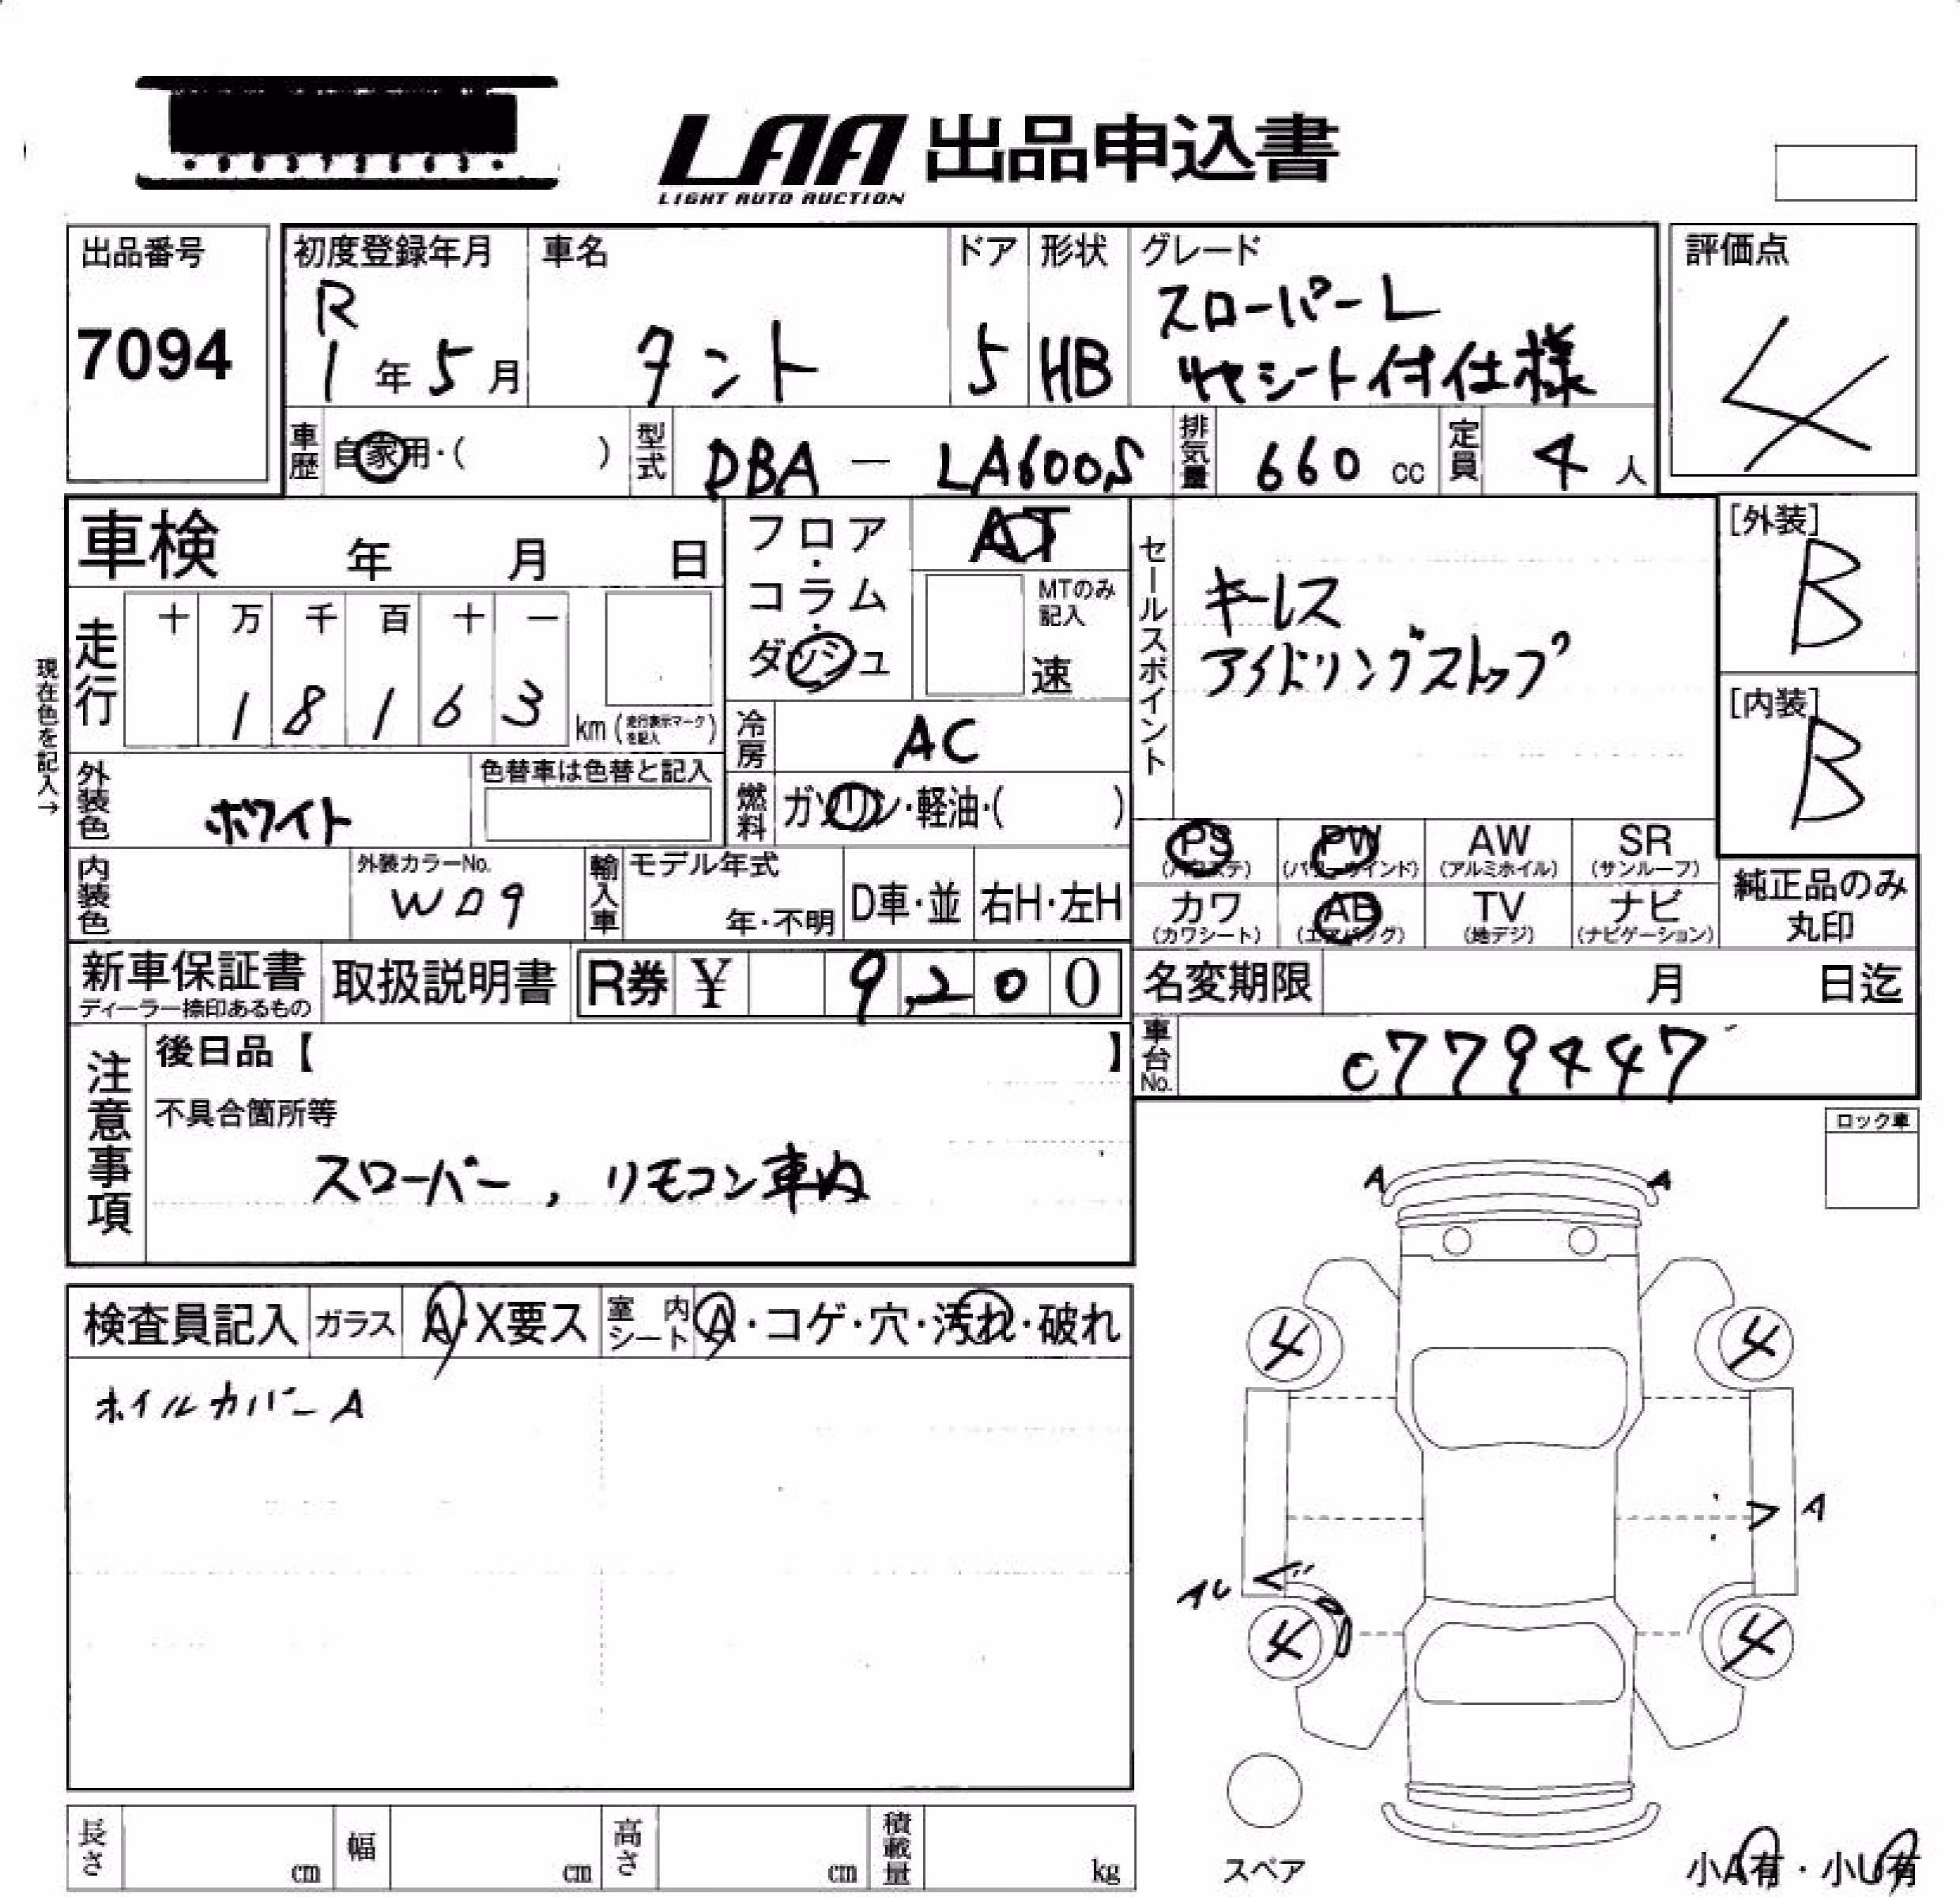 LAA 出品申込書
LIGHT AUTO AUCTION
出品番号
7094
初度登録年月
R
1年5月
車名
タント
ドア
5
形状
HB
グレード
スローパーL
リヤシート付仕様
評価点
4
車歴
自家用・( )
型式
DBA - LA600S
排気量
660 cc
定員
4人
車検 年 月 日
フロア・コラム・ダッシュ
AT
MTのみ記入
速
セールスポイント
キーレス
アイドリングストップ
[外装]
B
[内装]
B
現在色を記入→
走行
十 万 千 百 十 一
1 8 1 6 3
km (走行表示マークを記入)
冷房
AC
外装色
ホワイト
色替車は色替と記入
燃料
ガソリン・軽油・( )
PS
(パワステ)
PW
(パワーウインド)
AW
(アルミホイル)
SR
(サンルーフ)
カワ
(カワシート)
AB
(エアバッグ)
TV
(地デジ)
ナビ
(ナビゲーション)
純正品のみ
丸印
内装色
外装カラーNo.
W09
輸入車
モデル年式
年・不明
D車・並
右H・左H
新車保証書
ディーラー捺印あるもの
取扱説明書
R券 ¥ 9,200
名変期限 月 日迄
車台No.
0779447
注意事項
後日品【 】
不具合箇所等
スローパー, リモコン車内
ロック車
検査員記入
ガラス
A・X要ス
室内シート
A・コゲ・穴・汚れ・破れ
ホイルカバーA
A
A
4
4
A
4
4
スペア
長さ cm
幅 cm
高さ cm
積載量 kg
小A有・小U有